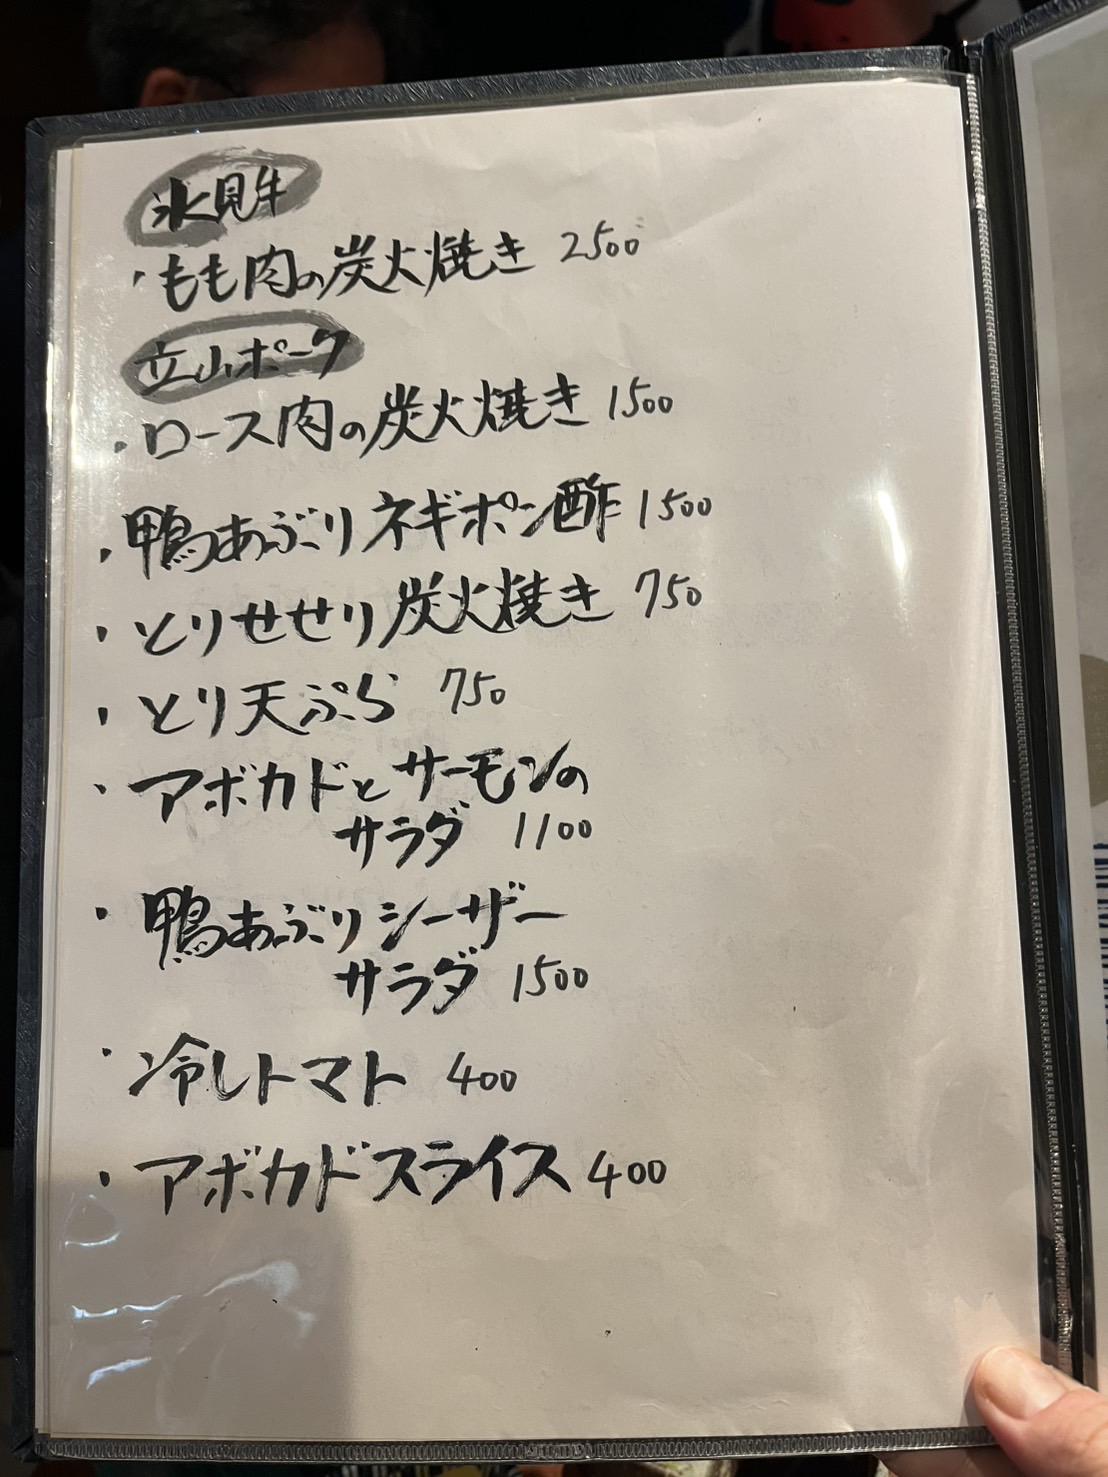 氷見牛
・もも肉の炭火焼き 2500
立山ポーク
・ロース肉の炭火焼き 1500
・鴨あぶりネギポン酢 1500
・とりせせり炭火焼き 750
・とり天ぷら 750
・アボカドとサーモンの
サラダ 1100
・鴨あぶりシーザー
サラダ 1500
・冷しトマト 400
・アボカドスライス 400